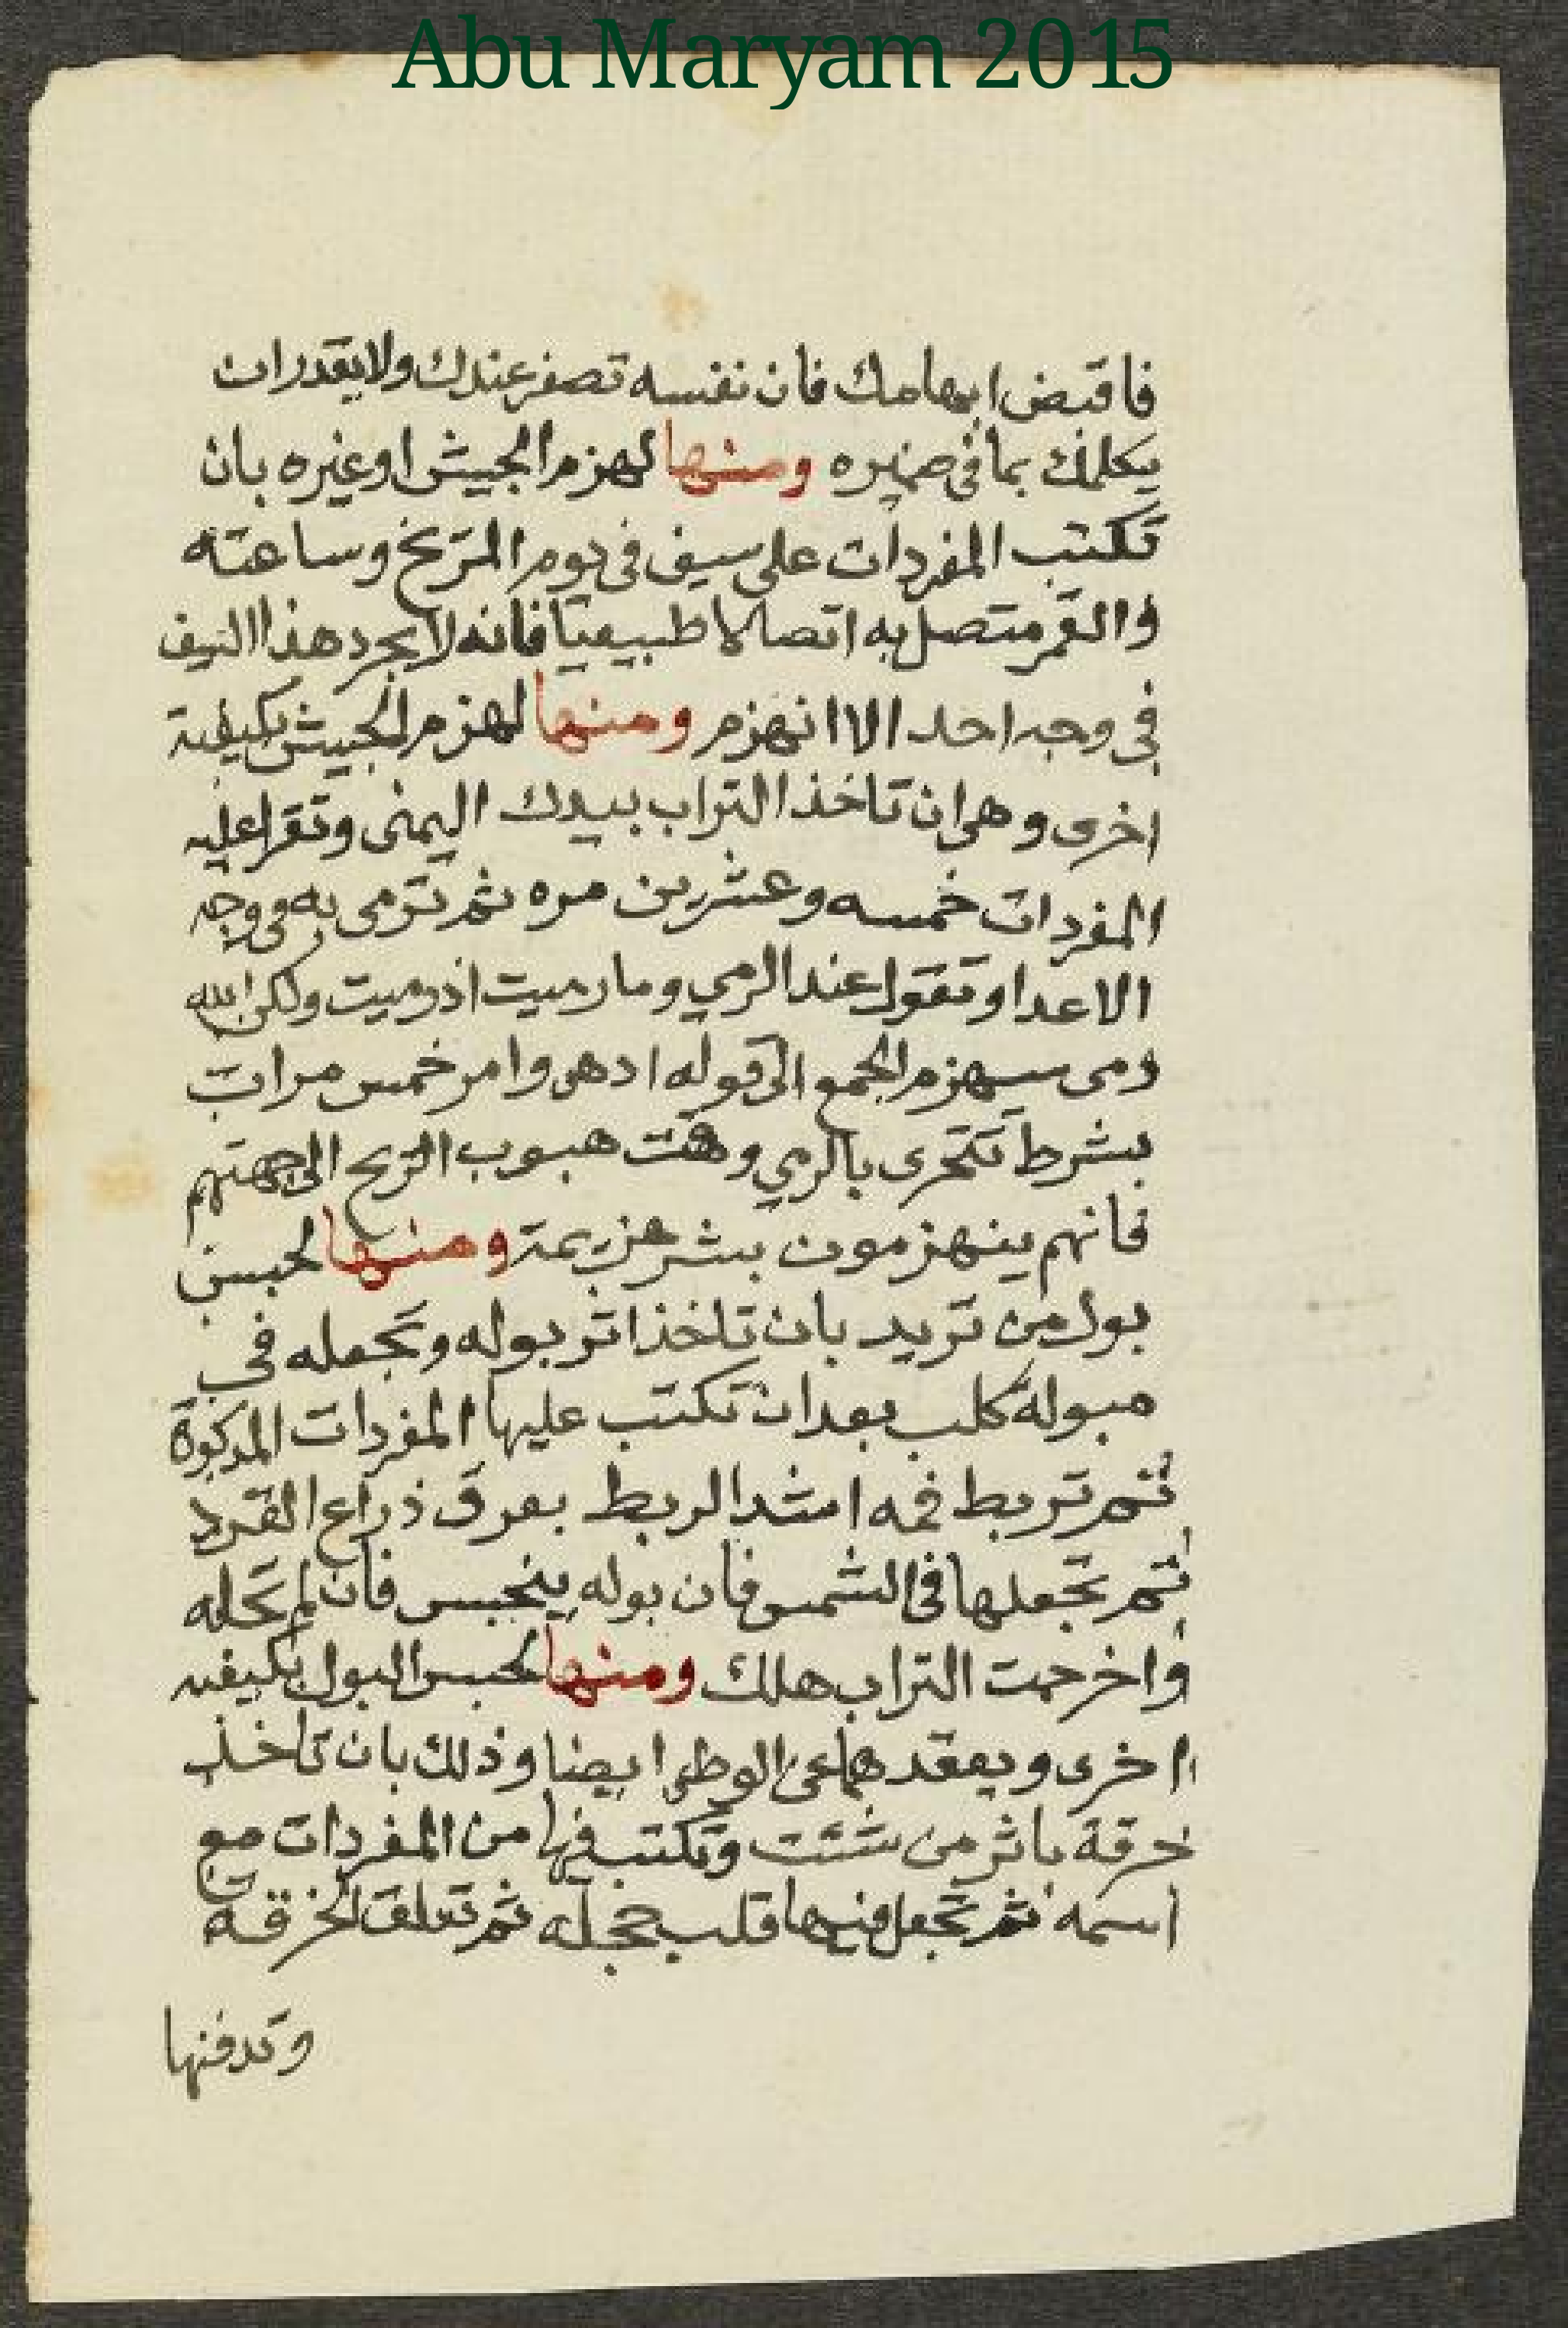 Abu Maryam 2015
فاقبض ابهامك فان نفسه تصغر عندك ولا يقدر ان
يكلمك بما فى ضميره ومنها لهزم الجيش او غيره بان
تكتب المفردات على سيف فى يوم المريخ وساعته
والقمر متصل به اتصالا طبيعيا فانه لا يجرد هذا السيف
فى وجه احد الا انهزم ومنها لهزم الجيش بكيفية
اخرى وهى ان تاخذ التراب بيدك اليمنى وتقرا عليه
المفردات خمسه وعشرين مره ثم ترمى به فى وجه
الاعدا وتقول عند الرمي وما رميت اذ رميت ولكن الله
رمى سيهزم الجمع الى قوله ادهى وامر خمس مرات
بشرط تتحرى بالرمي وقت هبوب الريح الى جهتهم
فانهم ينهزمون بشر هزيمة ومنها لحبس
بول من تريد بان تاخذ اثر بوله وتجعله في
مبولة كلب بعد ان تكتب عليها المفردات المذكورة
ثم تربط فمه اشد الربط بعرق ذراع القرد
ثم تجعلها فى الشمس فان بوله ينحبس فان لم تحله
واخرجت التراب هلك ومنها لحبس البول بكيفيه
اخرى ويعقد بها عن الوطى ايضا وذلك بان تاخذ
خرقة باثر من شئت وتكتب فيها من المفردات مع
اسمه ثم تجعل فيها قلب حجله ثم تعلق الخرقة
وتدفنها